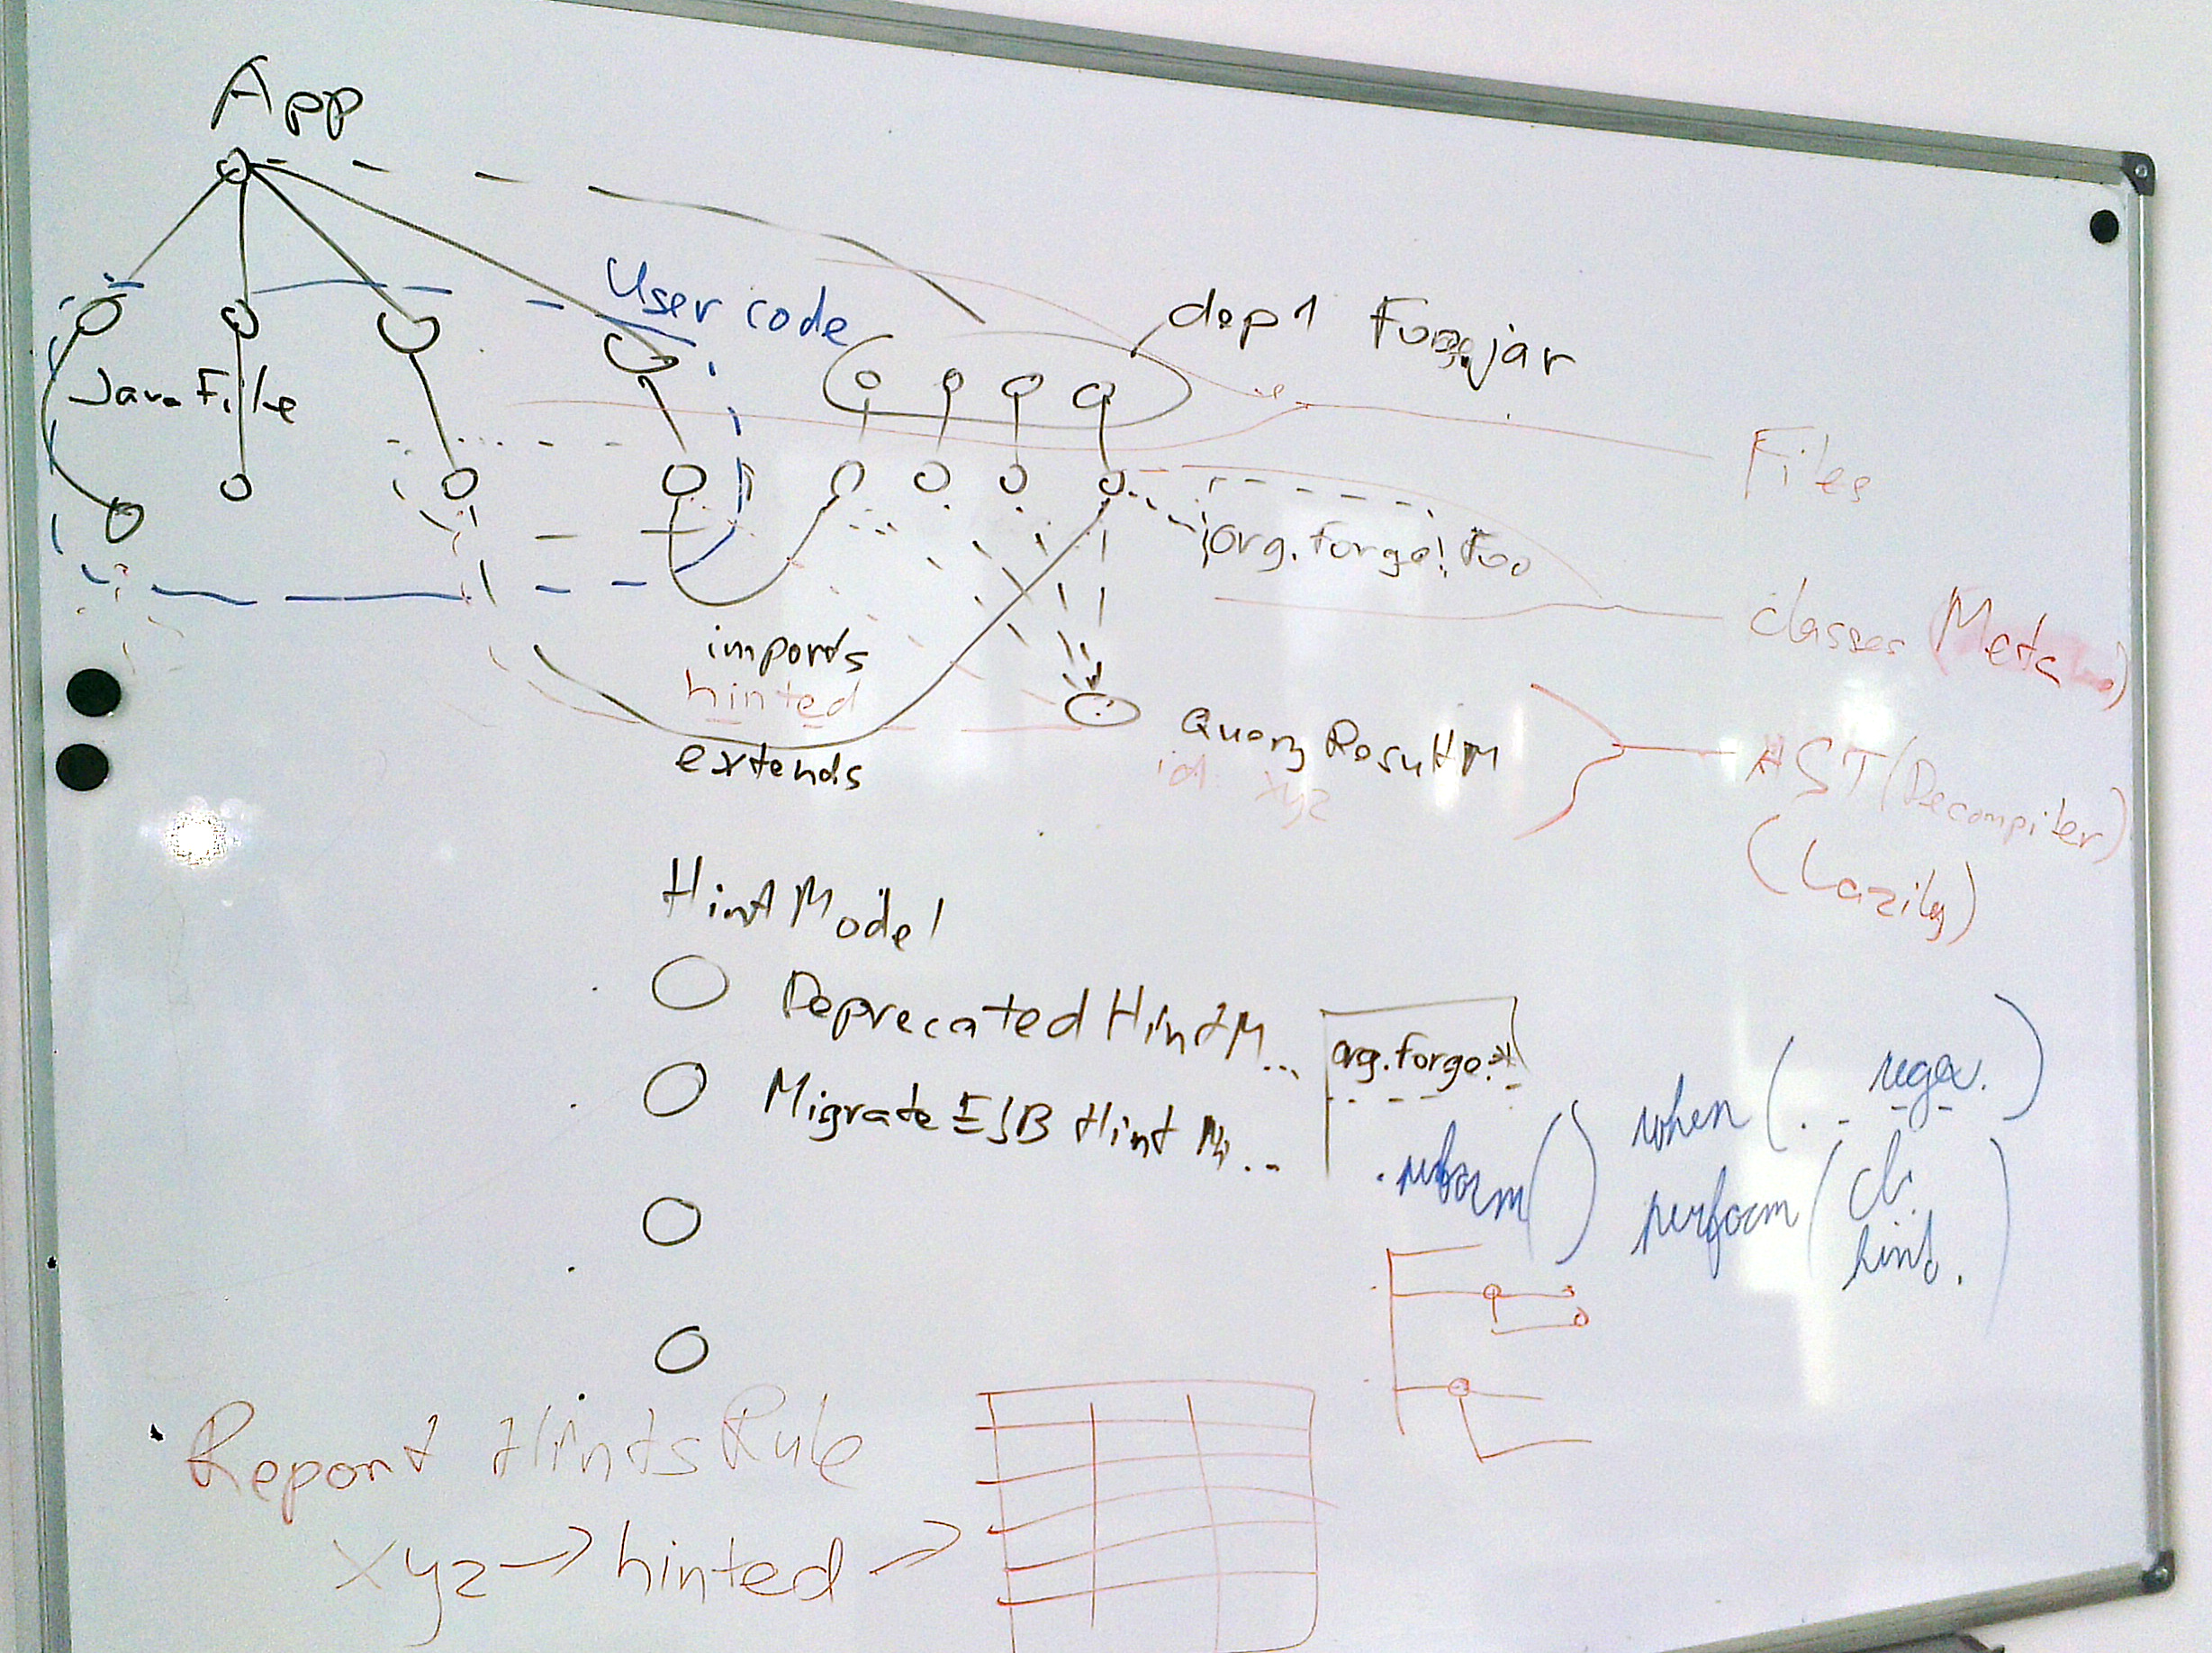 App
User code
dep1 Foo.jar
JavaFile
Files
org.forge.Foo
classes (Meta
imports
hinted
extends
QueryResultM
id: xyz
AST (Decompiler)
(Lazily)
HintModel
DeprecatedHintM...
org.forge.*
MigrateESB Hint M...
when (.. regex.)
.perform()
perform (
hint.
)
Report HintsRule
xyz → hinted →